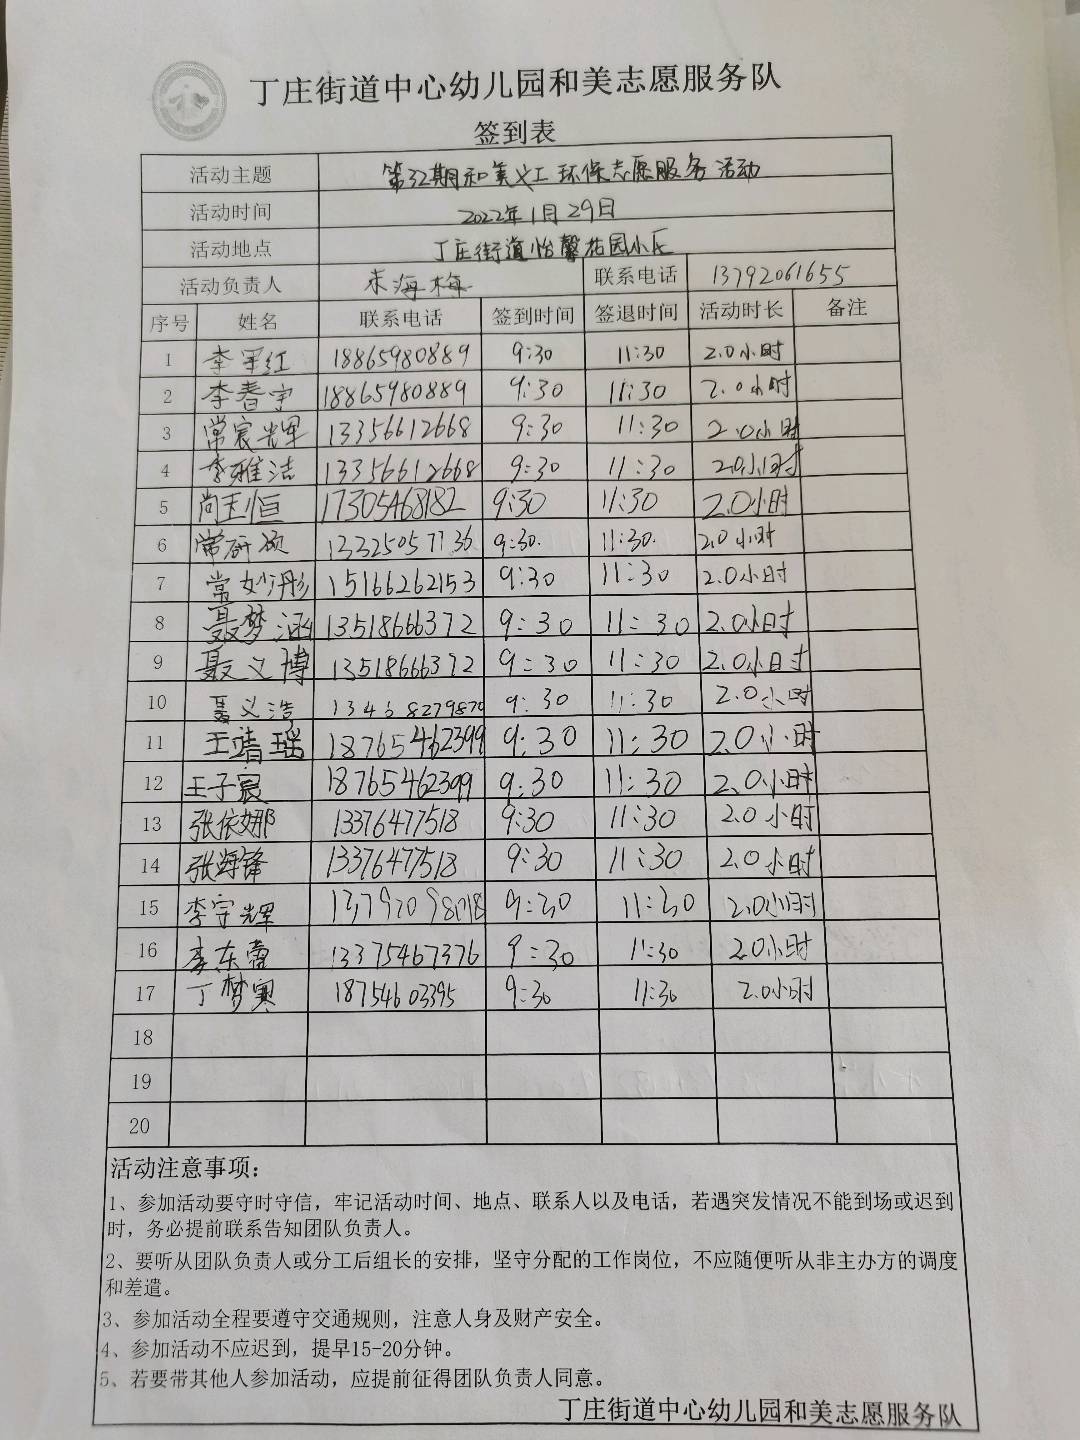 丁庄街道中心幼儿园和美志愿服务队
签到表
活动主题 第32期和美义工环保志愿服务活动
活动时间 2022年1月29日
活动地点 丁庄街道怡馨花园小区
活动负责人 海梅 联系电话 13792061655
序号 姓名 联系电话 签到时间 签退时间 活动时长 备注
1 李军红 18865980889 9:30 11:30 2.0小时
2 李春宇 18865980889 9:30 11:30 2.0小时
3 常宸辉 13356612668 9:30 11:30 2.0小时
4 李雅洁 13356612668 9:30 11:30 2.0小时
5 尚玉恒 17305468182 9:30 11:30 2.0小时
6 常研硕 13325057736 9:30. 11:30. 2.0小时
7 常妙彤 15166262153 9:30 11:30 2.0小时
8 聂梦涵 13518666372 9:30 11:30 2.0小时
9 聂义博 13518666372 9:30 11:30 2.0小时
10 聂义浩 13468279870 9:30 11:30 2.0小时
11 王靖瑶 18765462399 9:30 11:30 2.0小时
12 王子宸 18765462399 9:30 11:30 2.0小时
13 张依娜 13376477518 9:30 11:30 2.0小时
14 张海锋 13376477518 9:30 11:30 2.0小时
15 李守辉 13792098018 9:30 11:30 2.0小时
16 李东蕾 13375467376 9:30 11:30 2.0小时
17 丁梦寒 18754603395 9:30 11:30 2.0小时
18
19
20
活动注意事项：
1、参加活动要守时守信，牢记活动时间、地点、联系人以及电话，若遇突发情况不能到场或迟到
时，务必提前联系告知团队负责人。
2、要听从团队负责人或分工后组长的安排，坚守分配的工作岗位，不应随便听从非主办方的调度
和差遣。
3、参加活动全程要遵守交通规则，注意人身及财产安全。
4、参加活动不应迟到，提早15-20分钟。
5、若要带其他人参加活动，应提前征得团队负责人同意。
丁庄街道中心幼儿园和美志愿服务队